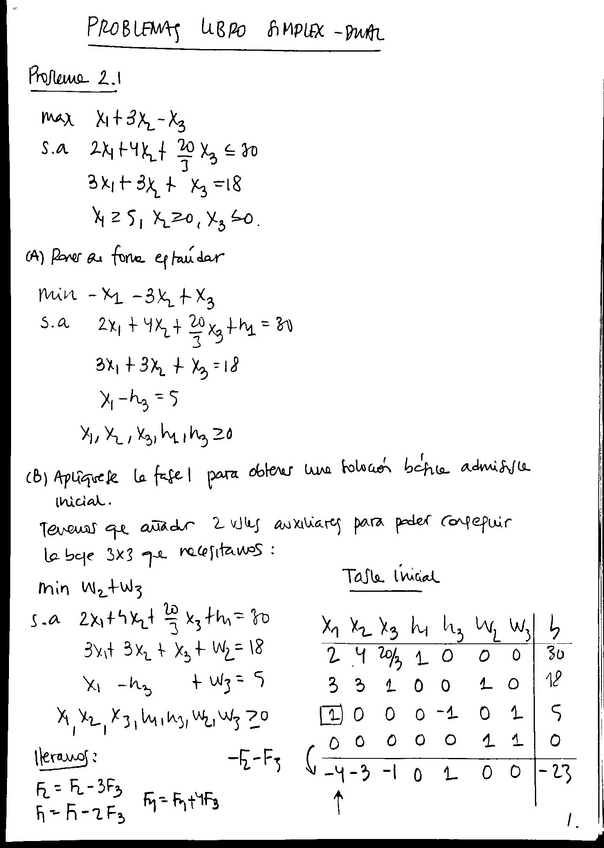 PROBLEMAS LIBRO SIMPLEX-DUAL
Problema 2.1
max x₁+3x₂-x₃
s.a 2x₁+4x₂+ 20/3 x₃ ≤ 30
3x₁+3x₂+ x₃ =18
x₁ ≥ 5, x₂≥0, x₃ ≤0.
(A) Poner en forma estándar
min -x₁ -3x₂+x₃
s.a 2x₁+4x₂+ 20/3 x₃+h₁ = 30
3x₁+3x₂ + x₃ =18
x₁-h₃ = 5
x₁, x₂, x₃, h₁, h₃ ≥0
(B) Aplíquese la fase 1 para obtener una solución básica admisible
inicial.
Tenemos que añadir 2 vbles auxiliares para poder conseguir
la base 3x3 que necesitamos:
min w₂+w₃
s.a 2x₁+4x₂+ 20/3 x₃+h₁=30
3x₁+3x₂+x₃+w₂=18
x₁ -h₃ +w₃ = 5
x₁, x₂, x₃, h₁, h₃, w₂, w₃ ≥0
Tabla inicial
x₁ x₂ x₃ h₁ h₃ w₂ w₃ b
2 4 20/3 1 0 0 0 30
3 3 1 0 0 1 0 18
1 0 0 0 -1 0 1 5
0 0 0 0 0 1 1 0
-4 -3 -1 0 1 0 0 -23
Iteramos: -F₂-F₃
F₂ = F₂-3F₃
F₁ = F₁-2F₃ F₄=F₄+4F₃
1.